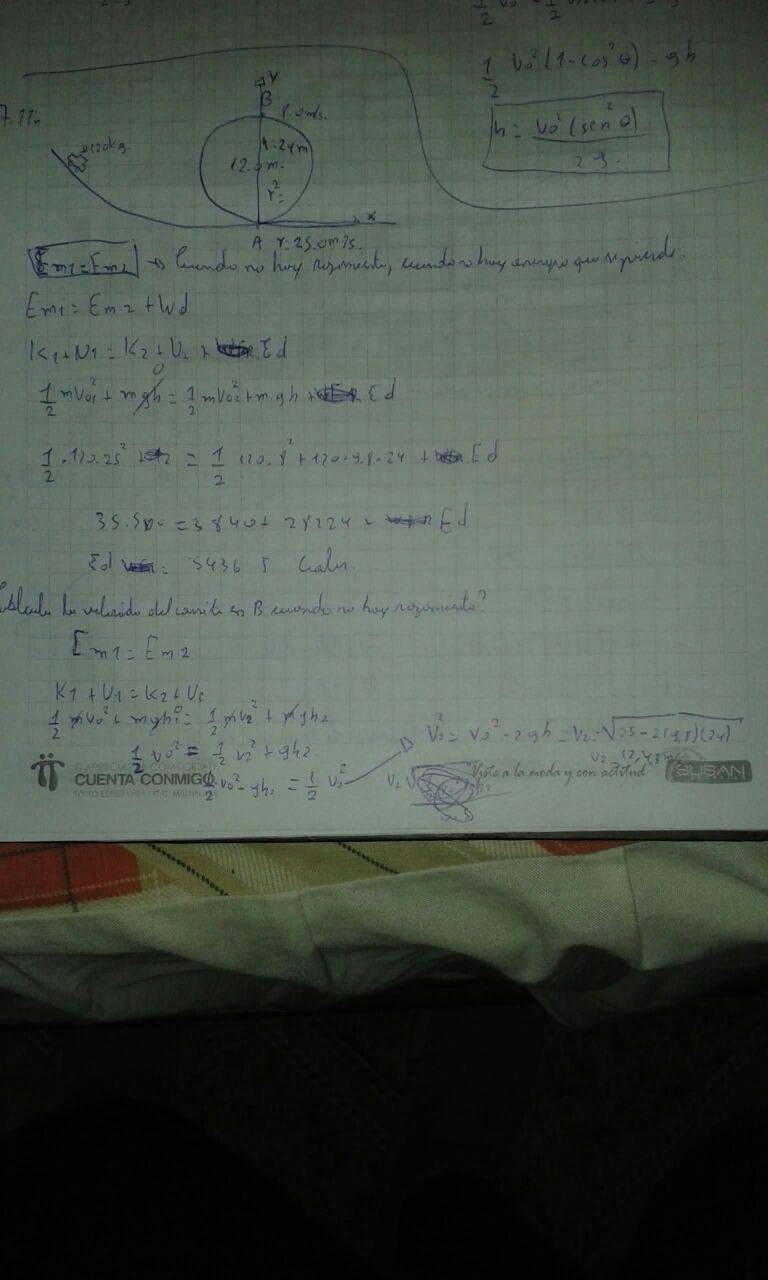 1/2 V0² (1-cos²θ) = gh
h = V0² (sen²θ) / 2g.
7.11.
Y
B
8.0m/s.
0.120kg.
h=24m
12. m.
r=
x
A V=25.0m/s.
Em1=Em2 → Cuando no hay rozamiento, cuando no hay energia que se pierde.
Em1 = Em2 + Wd
K1+U1 = K2+U2 + Ed
0
1/2 mV01² + mgh = 1/2 mV02² + mgh + Ed
1/2 .120.25² = 1/2 120.8² + 120.9.8.24 + Ed
= 3840 + 28224 + Ed
Ed = 5436 J Calor.
Calcular la velocidad del carrito en B cuando no hay rozamiento?
Em1 = Em2
K1 + U1 = K2 + U2
1/2 mV0² + mgh1 = 1/2 mV2² + mgh2
1/2 V0² = 1/2 V2² + gh2
1/2 V0² - gh2 = 1/2 V2²
V2² = V0² - 2gh = V2 = √25-2(9.8)(24)
CUENTA CONMIGO
Viste a la moda y con actitud
SUSAN